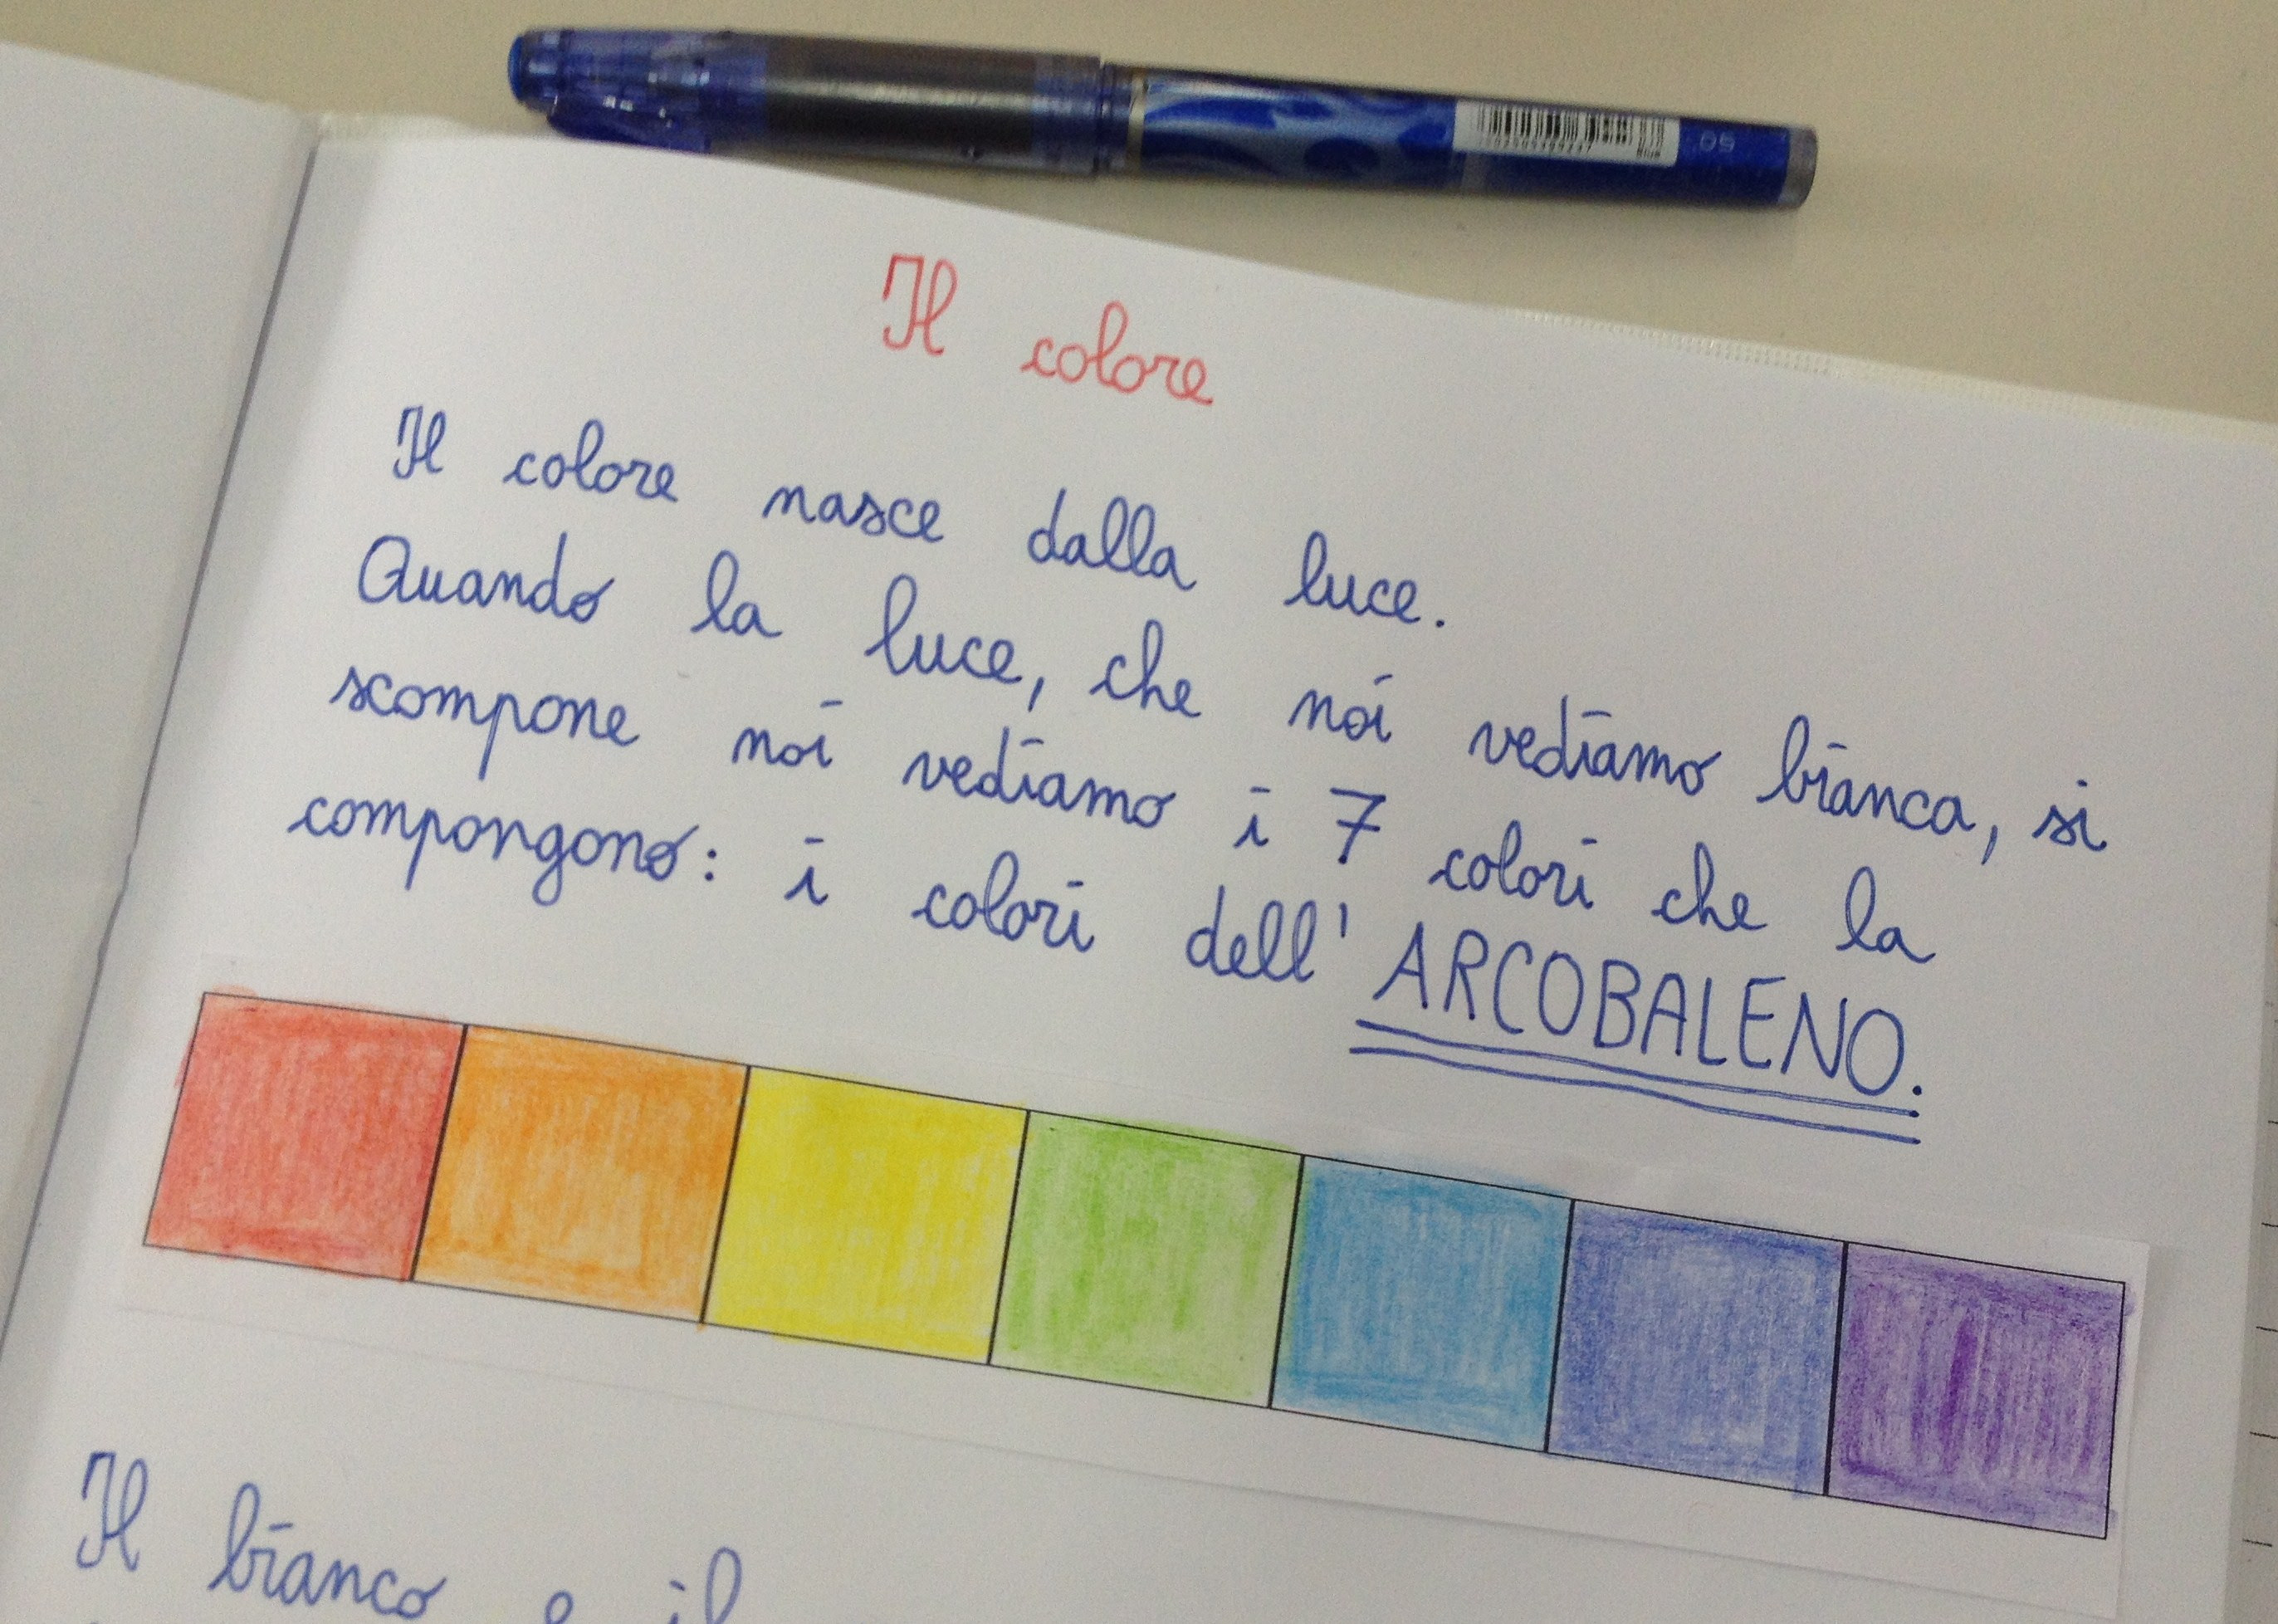 Il colore
Il colore nasce dalla luce.
Quando la luce, che noi vediamo bianca, si
scompone noi vediamo i 7 colori che la
compongono: i colori dell'ARCOBALENO.
Il bianco e il
05
Blue